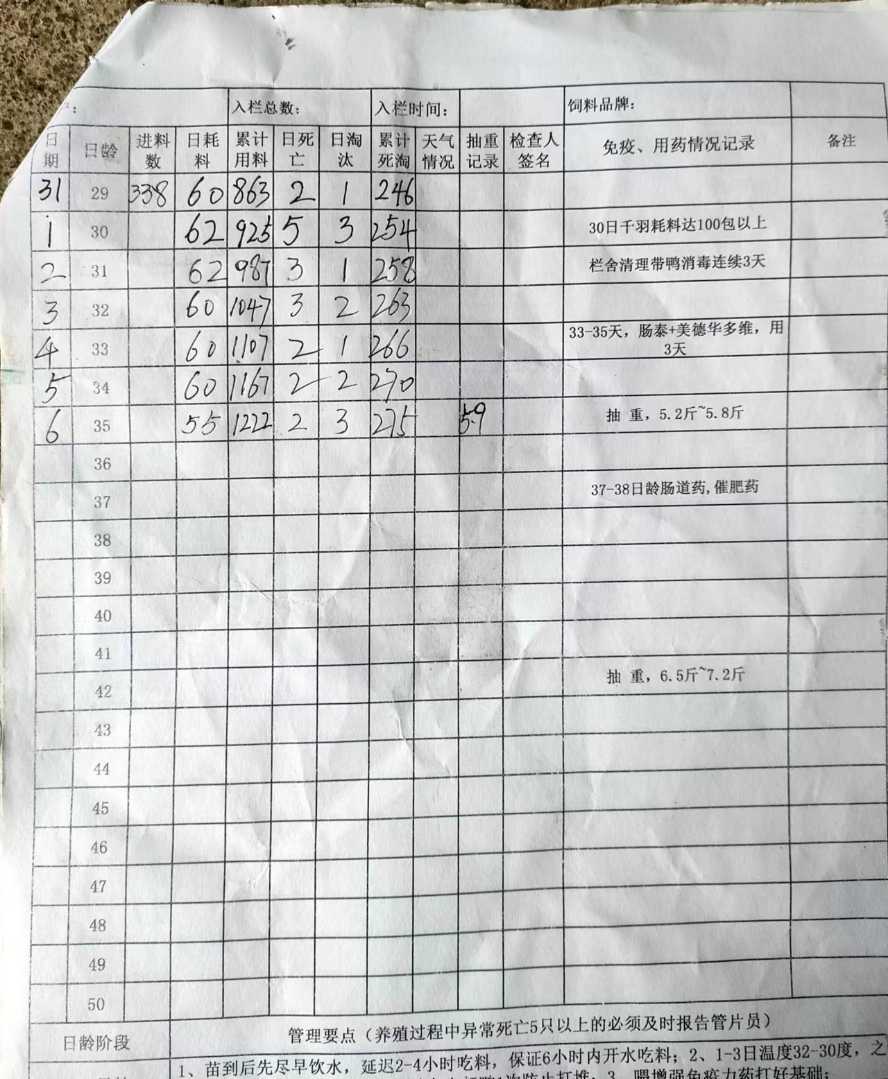 ： 入栏总数： 入栏时间： 饲料品牌：
日期 日龄 进料数 日耗料 累计用料 日死亡 日淘汰 累计死淘 天气情况 抽重记录 检查人签名 免疫、用药情况记录 备注
31 29 338 60 863 2 1 246
1 30 62 925 5 3 254 30日千羽耗料达100包以上
2 31 62 987 3 1 258 栏舍清理带鸭消毒连续3天
3 32 60 1047 3 2 263
4 33 60 1107 2 1 266 33-35天，肠泰+美德华多维，用3天
5 34 60 1167 2 2 270
6 35 55 1222 2 3 275 5.9 抽 重，5.2斤~5.8斤
36
37 37-38日龄肠道药,催肥药
38
39
40
41
42 抽 重，6.5斤~7.2斤
43
44
45
46
47
48
49
50
日龄阶段 管理要点（养殖过程中异常死亡5只以上的必须及时报告管片员）
1、苗到后先尽早饮水，延迟2-4小时吃料，保证6小时内开水吃料；2、1-3日温度32-30度，之
3、喂增强免疫力药打好基础；